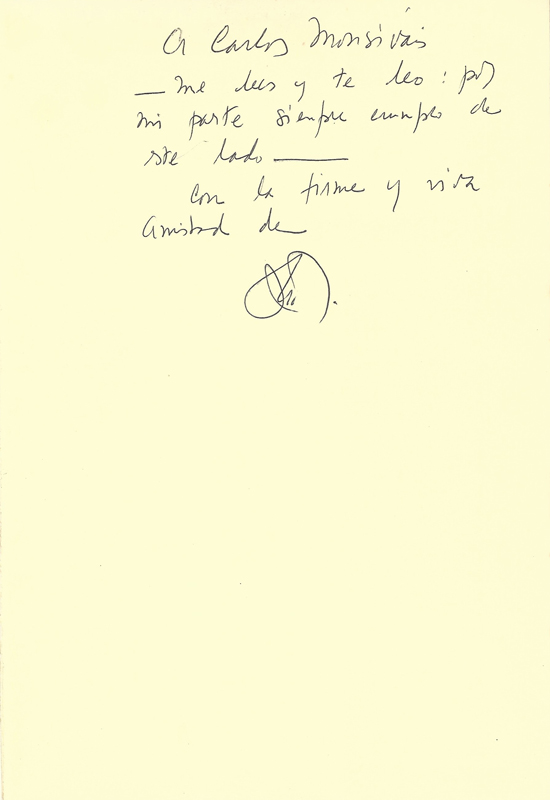 A Carlos Monsiváis
— me lees y te leo : por
mi parte siempre cumplo de
este lado —
con la firme y viva
Amistad de